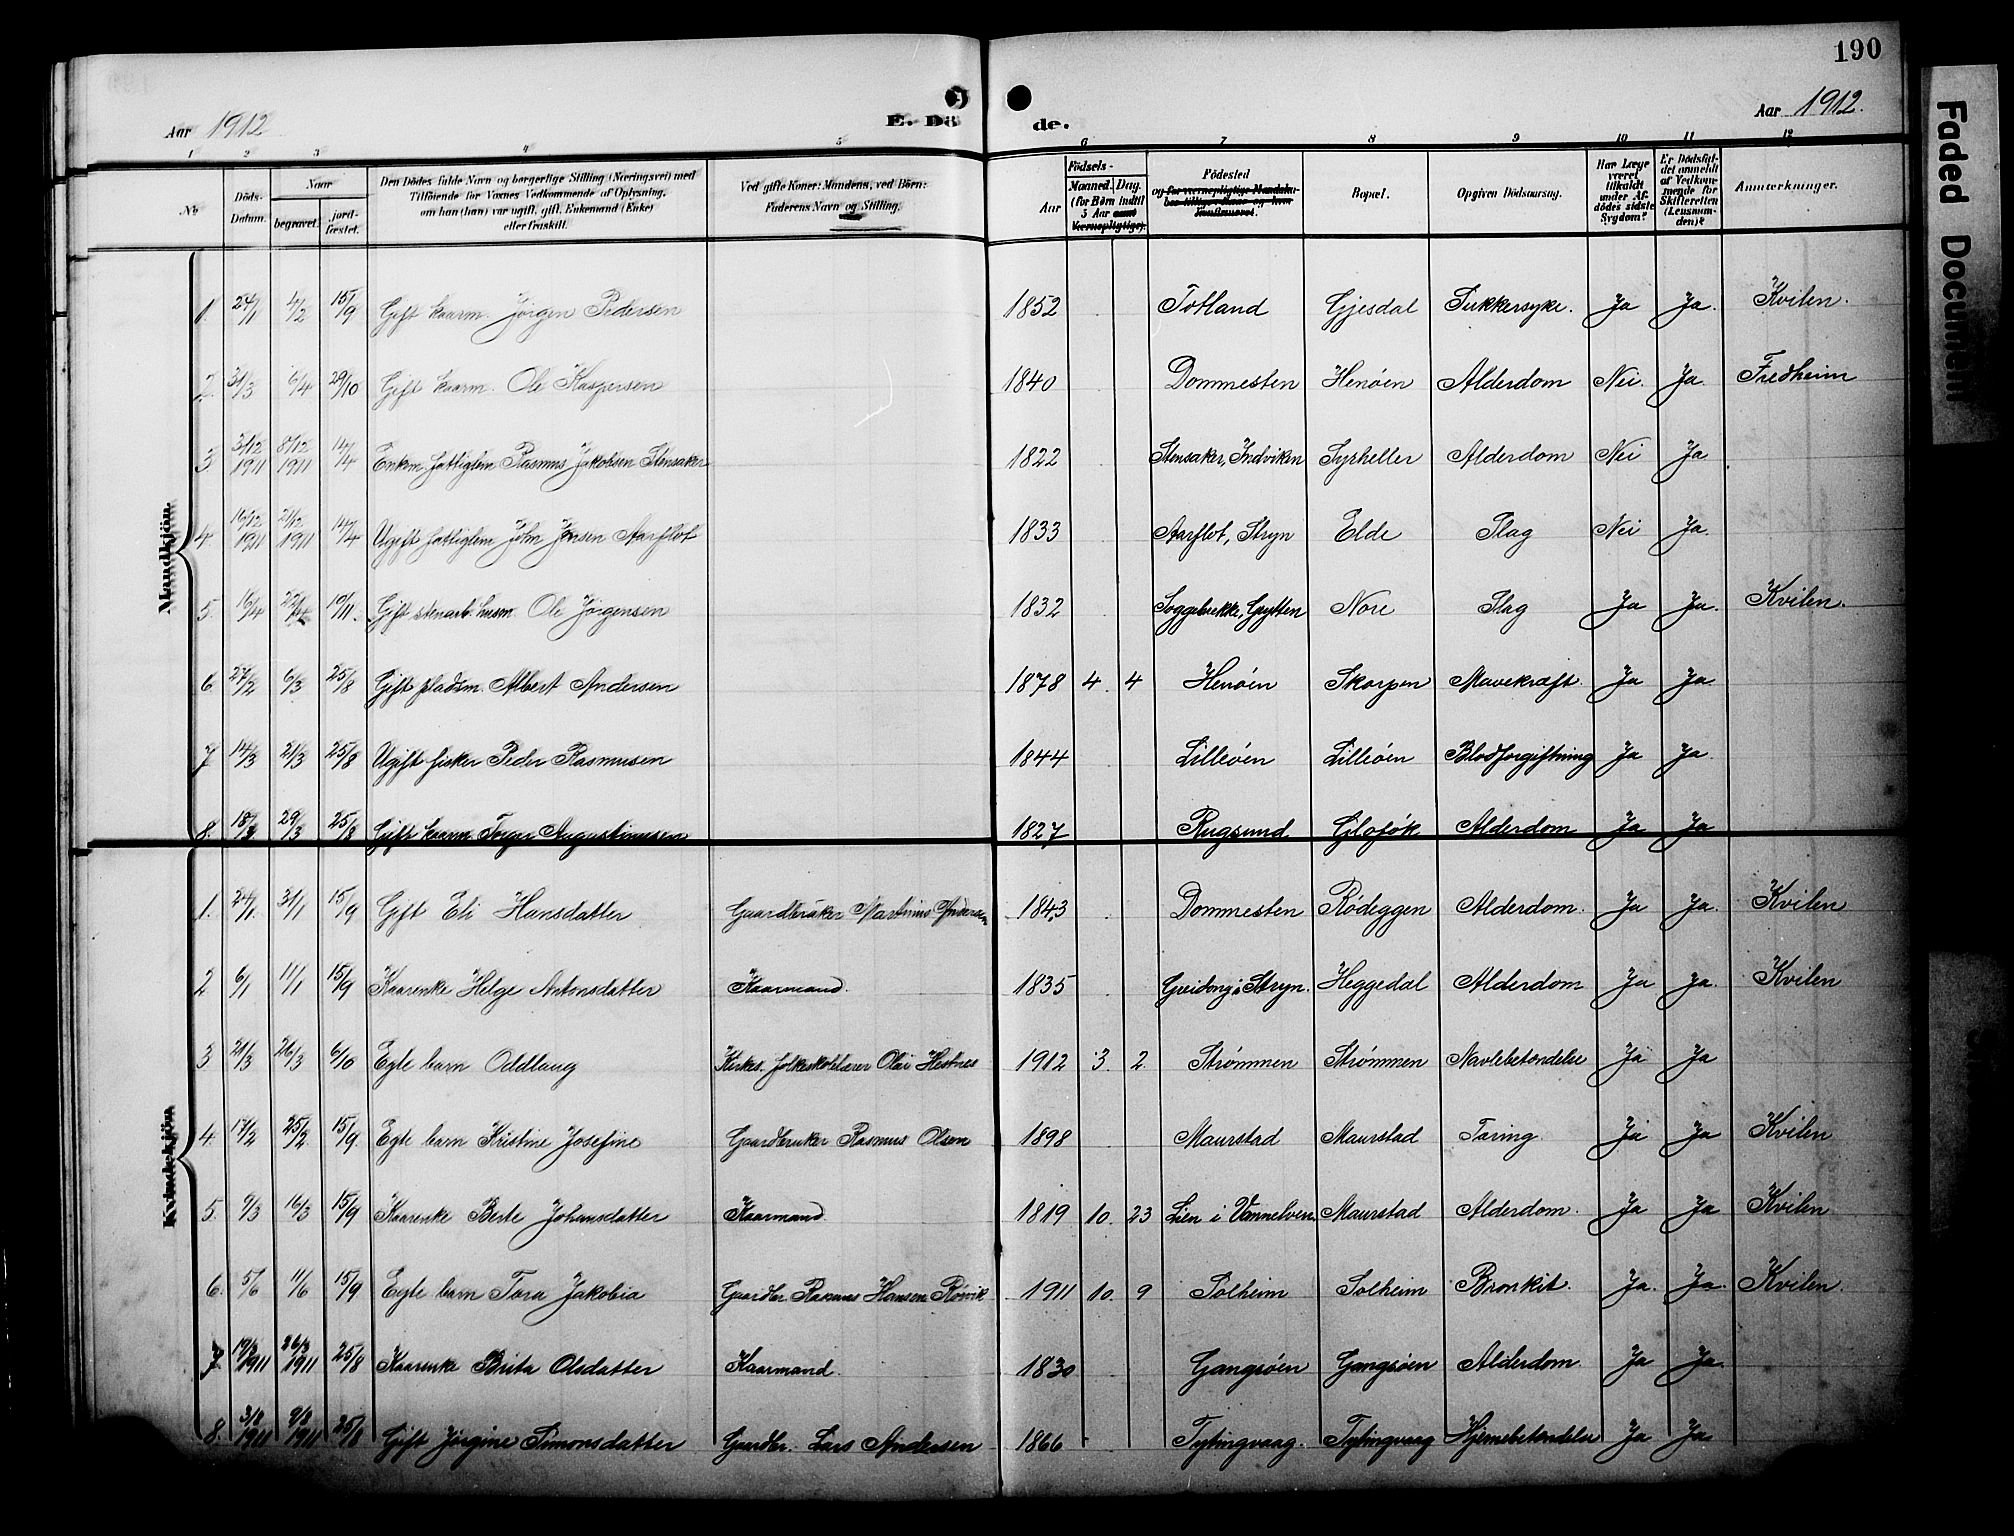 190
Aar 1912
E. Dö
de.
Aar 1912.
1 2 3 4 5 6 7 8 9 10 11 12
No
Döds-Datum.
Naar
begravet.
jord-fæstet.
Den Dödes fulde Navn og borgerlige Stilling (Næringsvei) med
Tilföiende for Voxnes Vedkommende af Oplysning,
om han (hun) var ugift, gift, Enkemand (Enke)
eller fraskilt.
Ved gifte Koner: Mandens, ved Börn:
Faderens Navn og Stilling.
Födsels-
Aar
Maaned. Dag.
(for Börn indtil
5 Aar samt
Værnepligtige).
Födested
og for værnepligtige Mandska-
ber tillige
Bopæl.
Opgiven Dödsaarsag.
Har Læge
været
tilkaldt
under Af-
dödes sidste
Sygdom?
Er Dödsfal-
det anmeldt
af Vedkom-
mende for
Skifteretten
(Lensman-
den)?
Anmærkninger.
Mandkjön.
1. 24/1 4/2 15/9 Gift kaarm. Jörgen Pedersen 1852 Totland Gjesdal Sukkersyke. Ja Ja. Kvilen.
2. 31/3 6/4 29/10 Gift kaarm. Ole Kaspersen 1840 Dommesten Henöen Alderdom Nei. Ja. Fredheim
3 31/12 1911 8/12 1911 14/4 Enkem. fattiglem Rasmus Jakobsen Stensaker 1822 Stensaker, Indviken Syrheller Alderdom Nei Ja
4. 16/12 1911 21/12 1911 14/4 Ugift fattiglem John Jensen Aarflot 1833 Aarflot, Stryn Elde Slag Nei Ja.
5. 16/4 22/4 10/11. Gift stenarb. husm. Ole Jörgensen 1832 Soggebekke, Grytten Nore Slag Ja Ja. Kvilen.
6 27/2 6/3 25/8 Gift pladsm. Albert Andersen 1878 4. 4 Henöen Skorpen Mavekræft. Ja Ja
7 14/3 21/3 25/8 Ugift fisker Peder Rasmusen 1844 Lilleöen Lilleöen Blodforgiftning Ja Ja
8. 18/3 29/3 25/8 Gift kaarm. Torger Augustinusen 1827 Rugsund Alderdom Ja Ja
Kvindekjön
1. 24/1. 31/1 15/9 Gift Eli Hansdatter Gaardbruker Martinus Andersen 1843 Dommesten Rödeggen Alderdom. Ja Ja. Kvilen
2 6/1 11/1 15/9 Kaarenke Helge Antonsdatter Kaarmand. 1835 Greidung i Stryn. Heggedal Alderdom Ja Ja. Kvilen
3 21/3 26/3 6/10 Egte barn Oddlaug Kirkes. folkeskolelærer Olai Hestnes 1912 3. 2. Strömmen Strömmen Navlebetændelse Ja Ja
4. 17/2 25/2 15/9. Egte barn Kristine Josefine Gaardbruker Rasmus Olsen 1898 Maurstad Maurstad Tæring. Ja Ja Kvilen
5. 9/3 16/3 15/9 Kaarenke Berte Johansdatter Kaarmand 1819 10. 23 Lien i Vannelven Maurstad Alderdom. Ja Ja Kvilen
6. 5/6 11/6 15/9 Egte barn Tora Jakobia Gaardbr. Rasmus Hansen Rövik 1911 10. 9 Solheim Solheim Bronkit. Ja. Ja. Kvilen.
7. 19/3 1911 26/3 1911 25/8 Kaarenke Brita Olsdatter Kaarmand. 1830 Gangsöen Gangsöen Alderdom. Ja Ja
8. 3/8 1911 9/8 1911 25/8 Gift Jörgine Simonsdatter Gaardbr. Lars Andersen 1866 Tytingvaag. Tytingvaag Hjernebetændelse Ja Ja
Faded Document